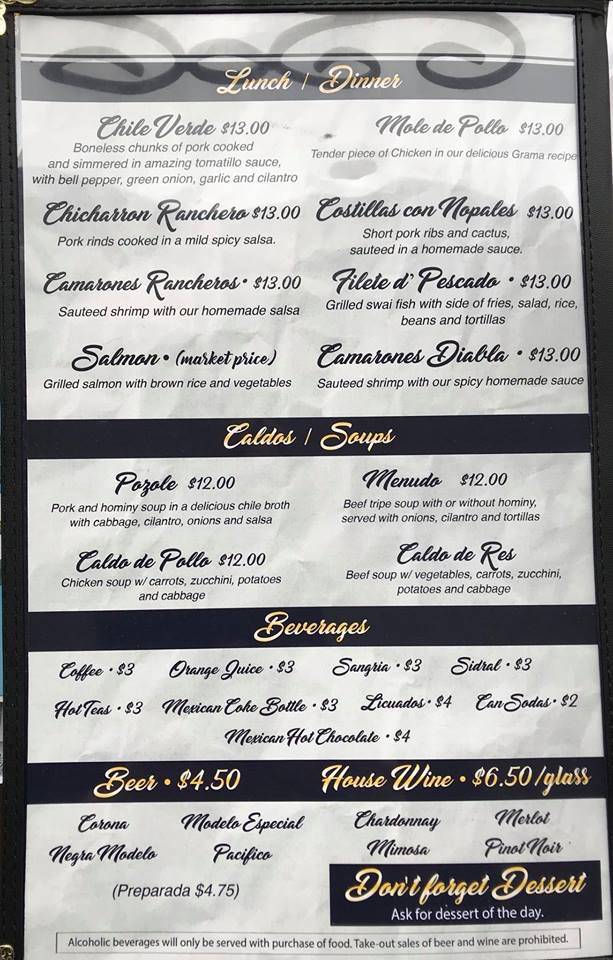 Lunch / Dinner
Chile Verde $13.00
Boneless chunks of pork cooked
and simmered in amazing tomatillo sauce,
with bell pepper, green onion, garlic and cilantro
Mole de Pollo $13.00
Tender piece of Chicken in our delicious Grama recipe
Chicharron Ranchero $13.00
Pork rinds cooked in a mild spicy salsa.
Costillas con Nopales $13.00
Short pork ribs and cactus,
sauteed in a homemade sauce.
Camarones Rancheros • $13.00
Sauteed shrimp with our homemade salsa
Filete d' Pescado • $13.00
Grilled swai fish with side of fries, salad, rice,
beans and tortillas
Salmon • (market price)
Grilled salmon with brown rice and vegetables
Camarones Diabla • $13.00
Sauteed shrimp with our spicy homemade sauce
Caldos / Soups
Pozole $12.00
Pork and hominy soup in a delicious chile broth
with cabbage, cilantro, onions and salsa
Menudo $12.00
Beef tripe soup with or without hominy,
served with onions, cilantro and tortillas
Caldo de Pollo $12.00
Chicken soup w/ carrots, zucchini, potatoes
and cabbage
Caldo de Res
Beef soup w/ vegetables, carrots, zucchini,
potatoes and cabbage
Beverages
Coffee • $3 Orange Juice • $3 Sangria • $3 Sidral • $3
Hot Teas • $3 Mexican Coke Bottle • $3 Licuados • $4 Can Sodas • $2
Mexican Hot Chocolate • $4
Beer • $4.50
Corona Modelo Especial
Negra Modelo Pacifico
(Preparada $4.75)
House Wine • $6.50/glass
Chardonnay Merlot
Mimosa Pinot Noir
Don't forget Dessert
Ask for dessert of the day.
Alcoholic beverages will only be served with purchase of food. Take-out sales of beer and wine are prohibited.